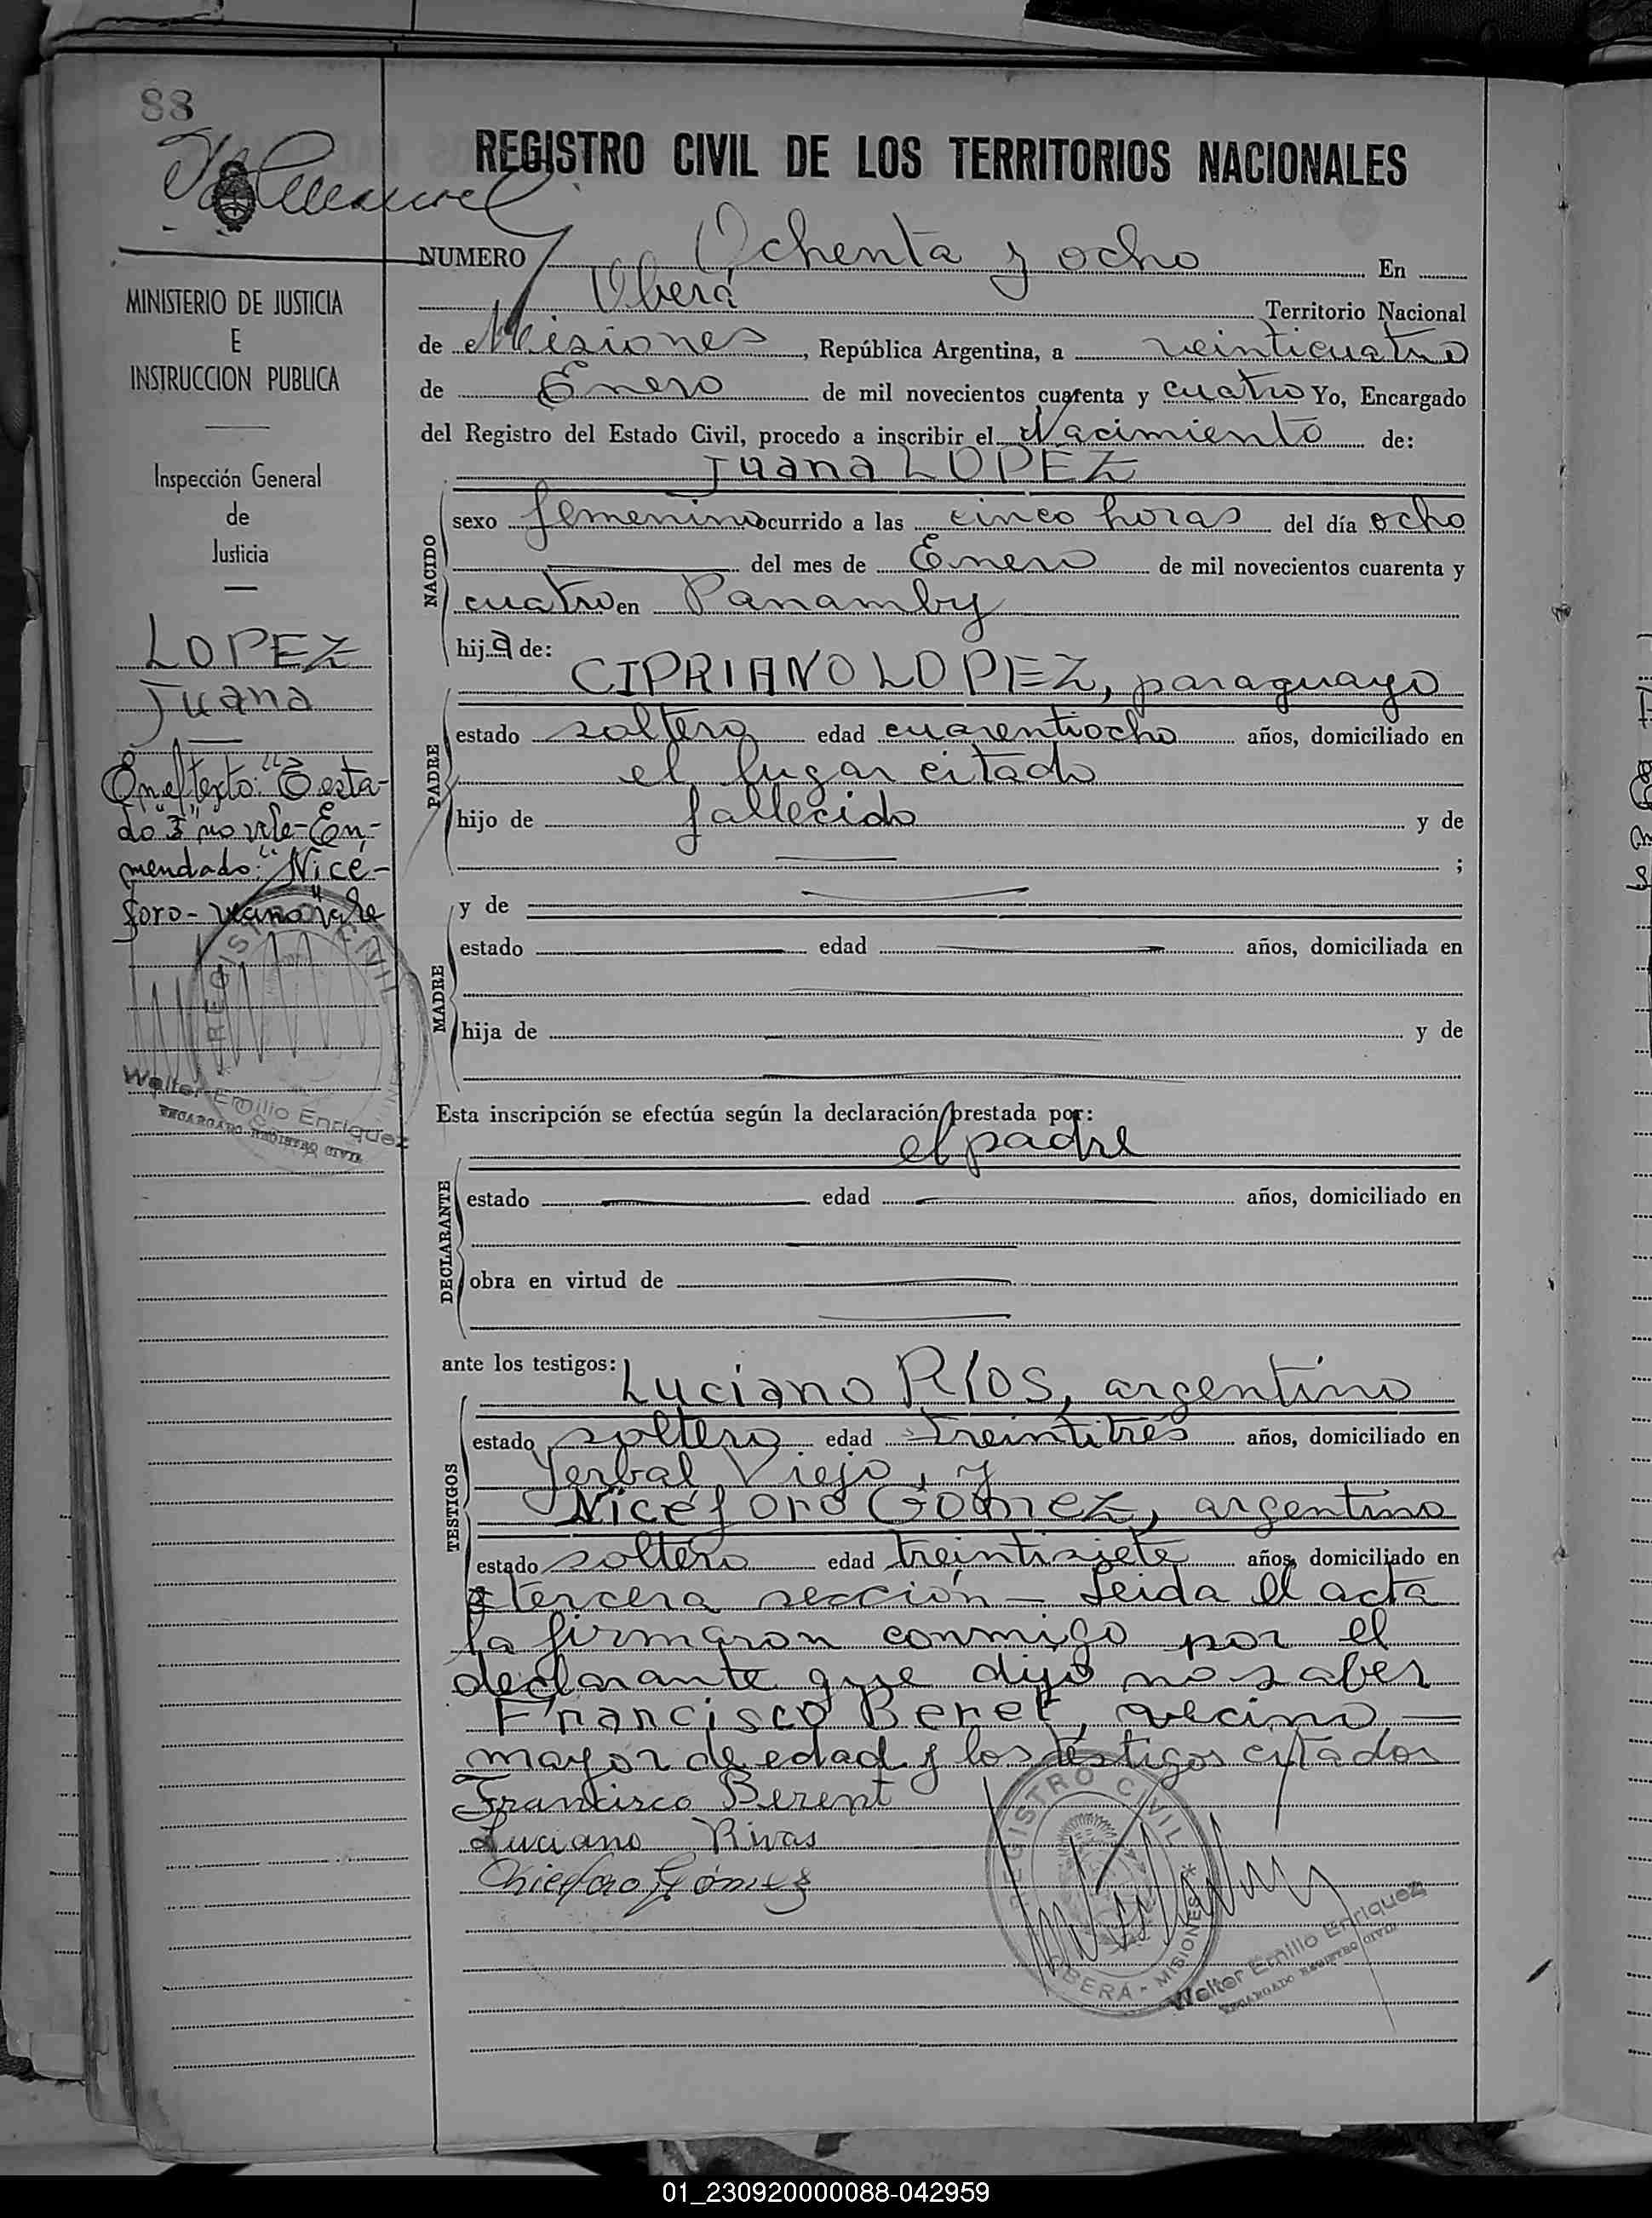 88
REGISTRO CIVIL DE LOS TERRITORIOS NACIONALES
NUMERO Ochenta y ocho En
Oberá Territorio Nacional
de Misiones, República Argentina, a veinticuatro
de Enero de mil novecientos cuarenta y cuatro Yo, Encargado
del Registro del Estado Civil, procedo a inscribir el Nacimiento de:
Juana LOPEZ
NACIDO
sexo femenino ocurrido a las cinco horas del día ocho
del mes de Enero de mil novecientos cuarenta y
cuatro en Panamby
hija de:
CIPRIANO LOPEZ, paraguayo
PADRE
estado soltero edad cuarentiocho años, domiciliado en
el lugar citado
hijo de fallecido y de
;
y de
MADRE
estado edad años, domiciliada en
hija de y de
Esta inscripción se efectúa según la declaración prestada por:
el padre
DECLARANTE
estado edad años, domiciliado en
obra en virtud de
ante los testigos:
Luciano RÍOS, argentino
TESTIGOS
estado soltero edad treintitrés años, domiciliado en
Yerbal Viejo, y
Nicéforo Gómez, argentino
estado soltero edad treintisiete años, domiciliado en
tercera sección - Leida el acta
la firmaron conmigo por el
declarante que dijo no saber
Francisco Beret, vecino,
mayor de edad y los testigos citados
Francisco Berent
Luciano Rivas
Gómez
REGISTRO CIVIL
OBERA - MISIONES
Walter Emilio Enriquez
ENCARGADO REGISTRO CIVIL
MINISTERIO DE JUSTICIA
E
INSTRUCCION PUBLICA
Inspección General
de
Justicia
LOPEZ
Juana
En el texto: "3 esta-
do 3" no vale - En-
mendado: "Nicé-
foro - vale
REGISTRO CIVIL
Walter Emilio Enriquez
ENCARGADO REGISTRO CIVIL
01_230920000088-042959